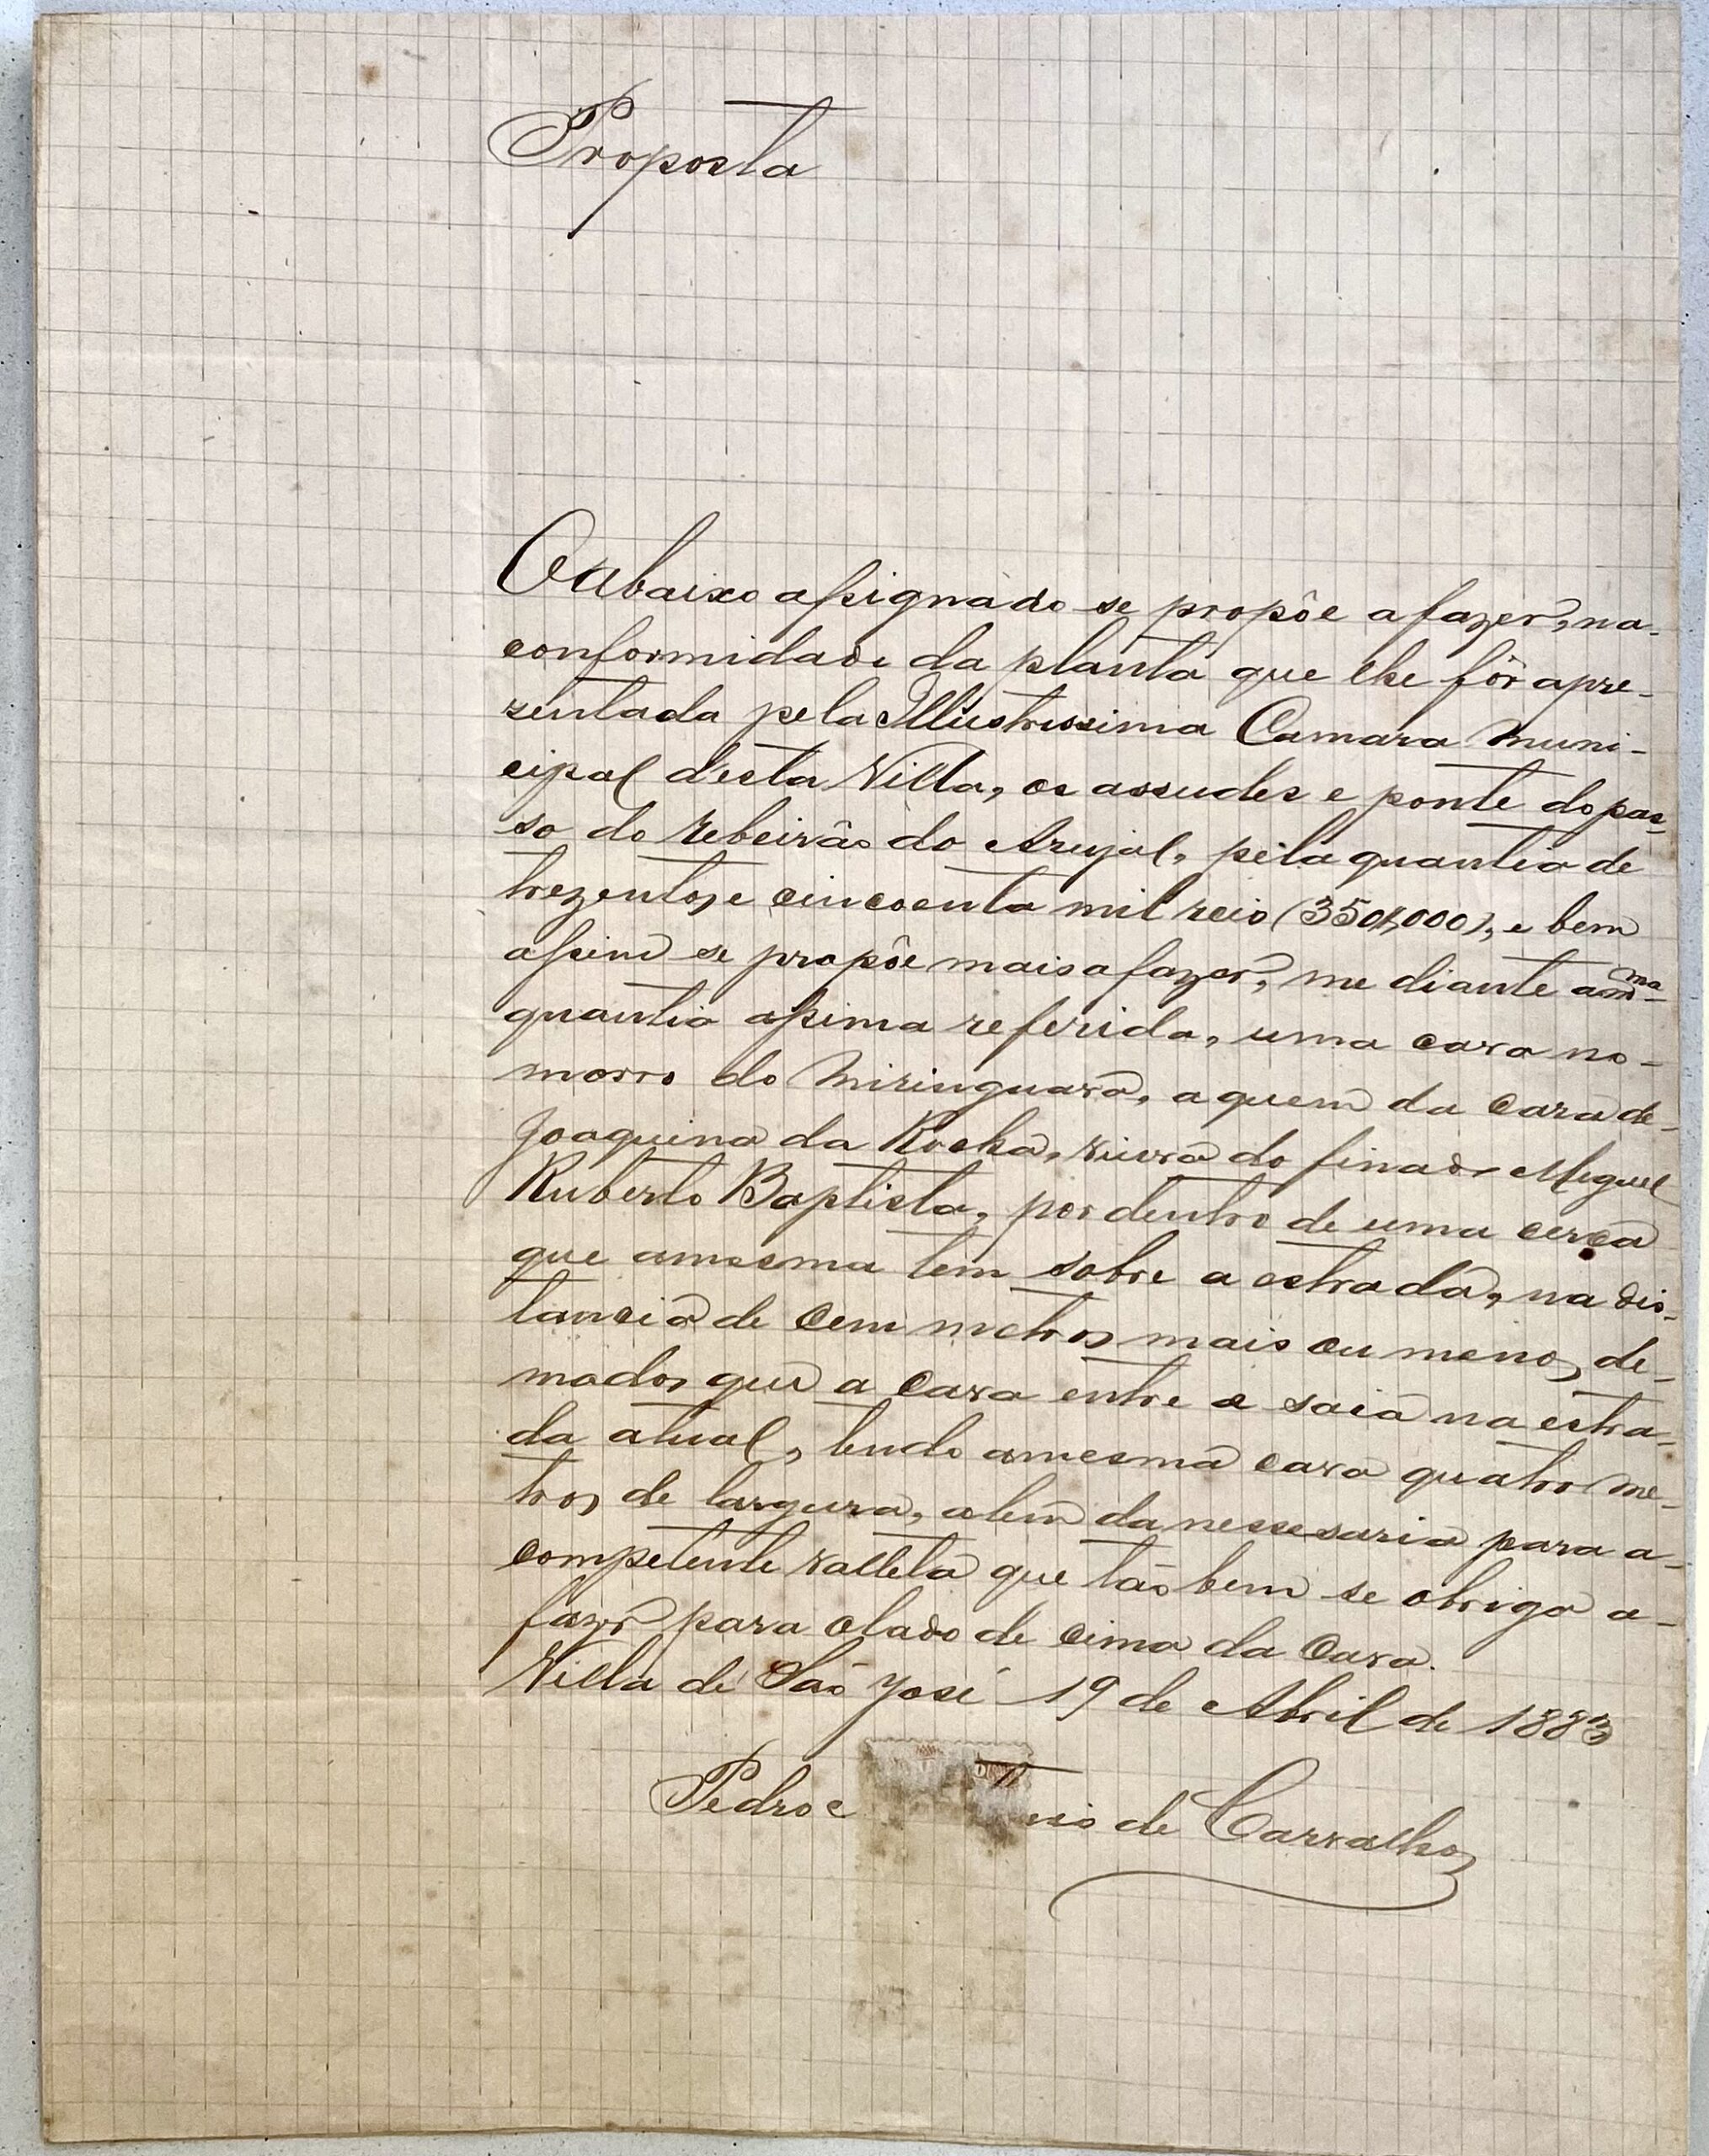 Proposta
O abaixo assignado se propôe a fazer, na-
conformidade da planta que lhe fôr apre-
zentada pela Illustrissima Camara Muni-
cipal d'esta Villa, os assudes e ponte do pas-
so do rebeirão do Arujal, pela quantia de
trezentos e cincoenta mil reis (350$000), e bem
assim se propôe mais a fazer, me diante a mma
quantia assima referida, uma cava no-
morro do Miringuava, aquem da caza de-
Joaquina da Rocha, viuva do finado Miguel
Ruberto Baptista, por dentro de uma cerca
que amesma tem sobre a estrada, na dis-
tancia de cem metros mais ou menos, de-
mados que a cava entre e saia na estra-
da atual, tendo amesma cava quatro me-
tros de largura, alem da nessesaria para a-
competente valleta que tão bem se obriga a-
fazer para olado de cima da cava.
Villa de São José 19 de Abril de 1883
Pedro nio de Carvalho